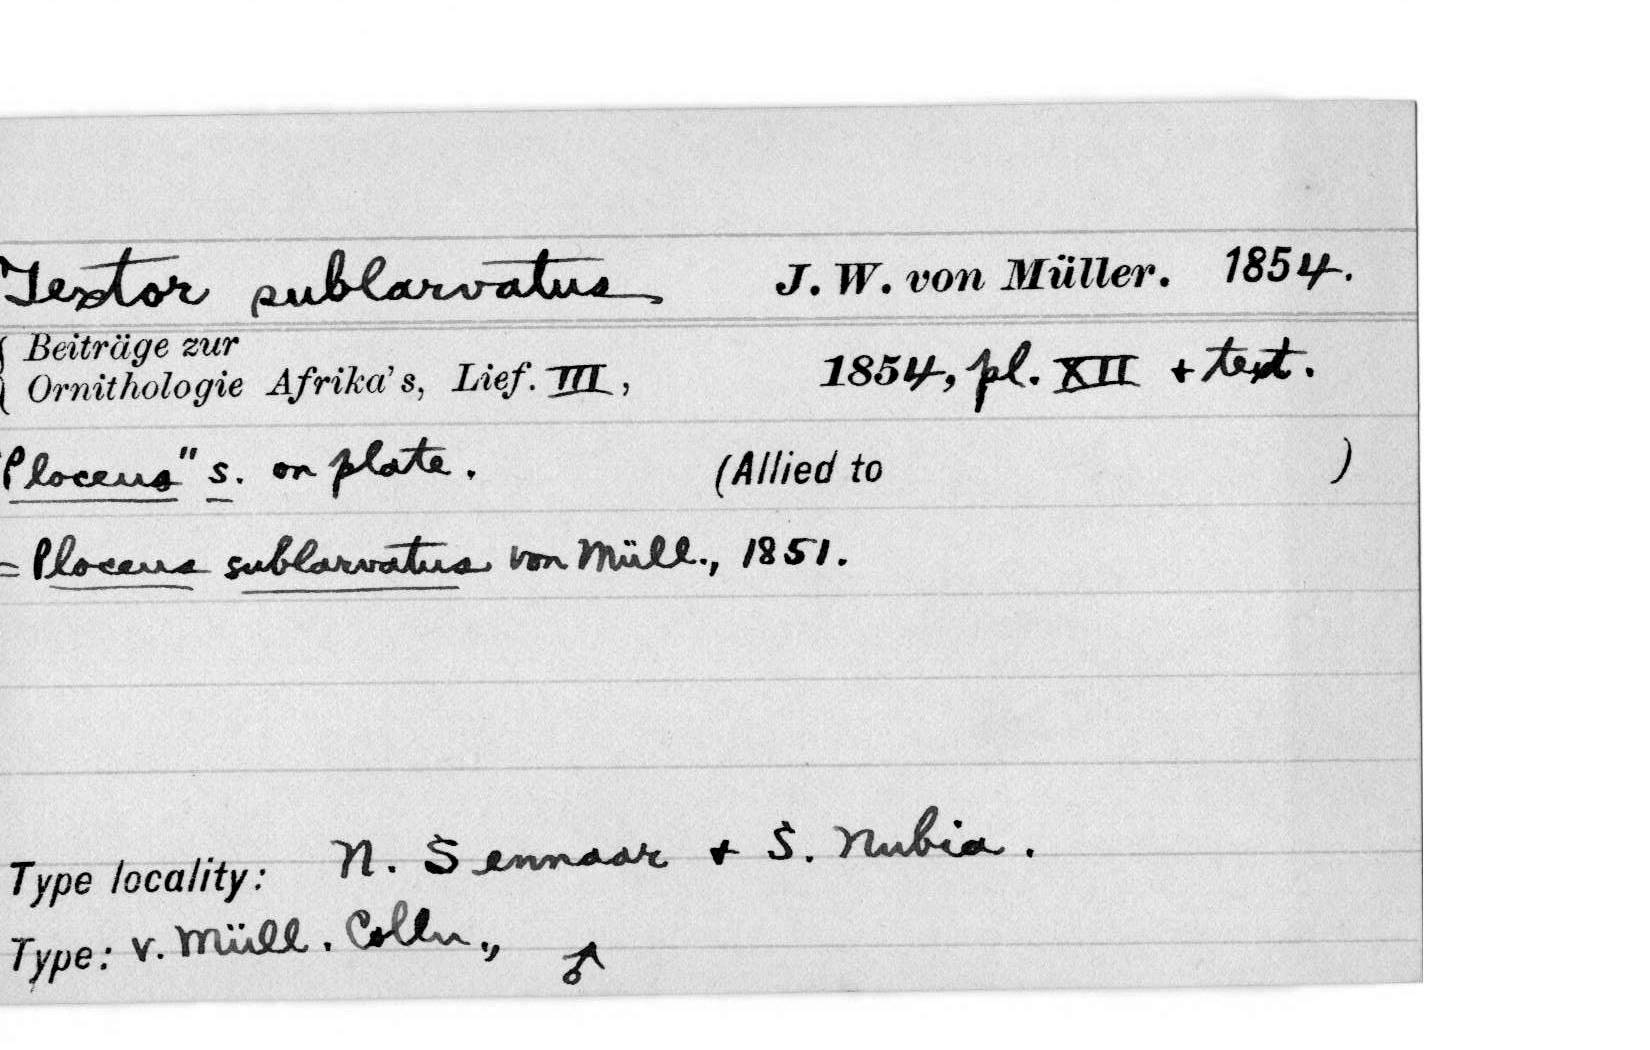 Textor sublarvatus J. W. von Müller. 1854.
Beiträge zur
Ornithologie Afrika's, Lief. III, 1854, pl. XII + text.
"Ploceus" s. on plate. (Allied to )
= Ploceus sublarvatus von Müll., 1851.
Type locality: N. Sennaar + S. Nubia.
Type: v. Müll. Colln., ♂